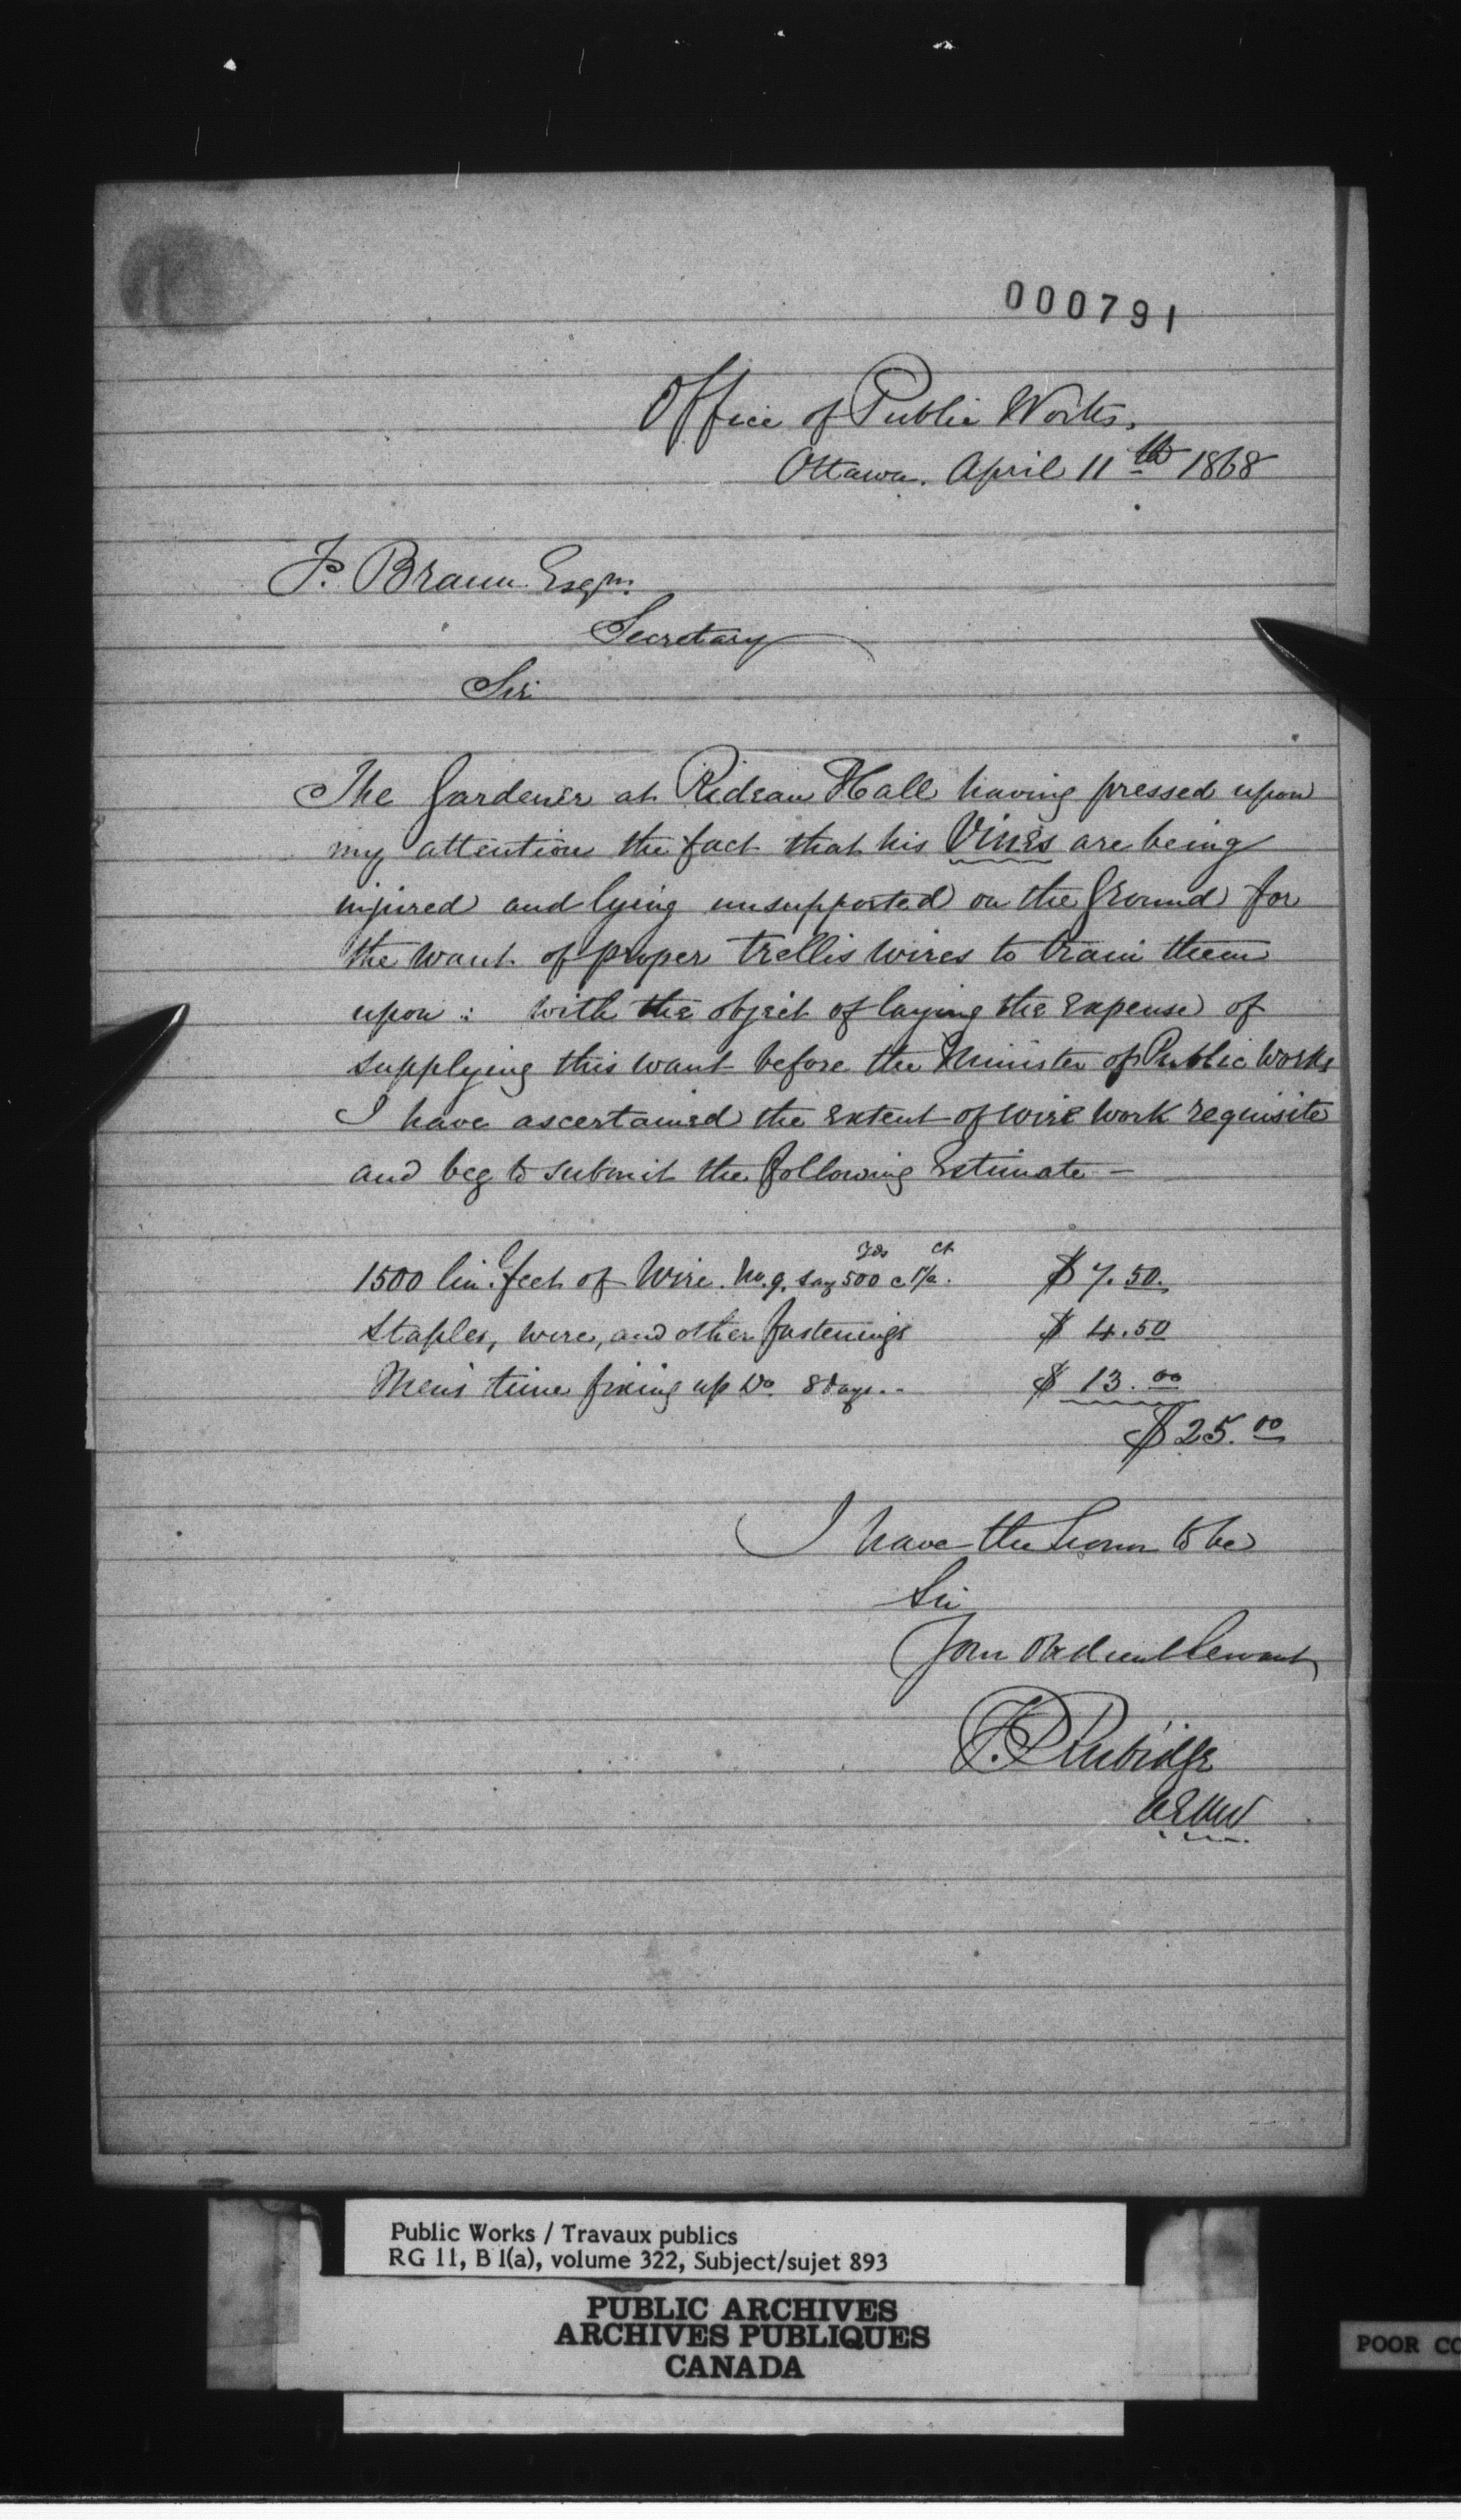 000791
Office of Public Works.
Ottawa. April 11th 1868
F. Braun Esqr.
Secretary
Sir
The Gardener at Rideau Hall having pressed upon
my attention the fact that his Vines are being
injured and lying unsupported on the Ground for
the want of proper trellis wires to train them
upon : with the object of laying the Expense of
supplying this want before the Minister of Public Works
I have ascertained the Extent of wire work requisite
and beg to submit the following Estimate —
1500 lin. feet of Wire. No. 9. say 500 $ 7.50.
Staples, wire, and other fastenings $ 4.50
Mens time fixing up Do. 8 days.. $ 13.00
$ 25.00
I have the honor to be
Sir
Your Obedient Servant
F. P. Rubidge
Public Works / Travaux publics
RG 11, B 1(a), volume 322, Subject/sujet 893
PUBLIC ARCHIVES
ARCHIVES PUBLIQUES
CANADA
POOR CO